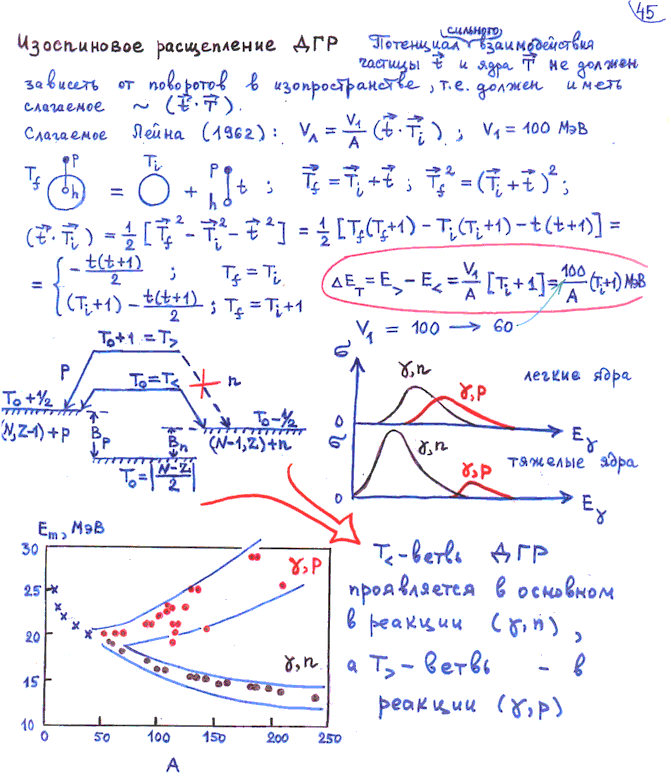 45
Изоспиновое расщепление ДГР Потенциал сильного взаимодействия
частицы t⃗ и ядра T⃗ не должен
зависеть от поворотов в изопространстве, т.е. должен иметь
слагаемое ~ (t⃗·T⃗).
Слагаемое Лейна (1962): V_Λ = V₁/A (t⃗·T⃗_i) ; V₁ = 100 МэВ
T_f p h = T_i + p h t ; T⃗_f = T⃗_i + t⃗ ; T⃗_f² = (T⃗_i + t⃗)² ;
(t⃗·T⃗_i) = 1/2 [T⃗_f² − T⃗_i² − t⃗²] = 1/2 [T_f(T_f+1) − T_i(T_i+1) − t(t+1)] =
= { − t(t+1)/2 ; T_f = T_i
(T_i+1) − t(t+1)/2 ; T_f = T_i+1
ΔE_T = E_> − E_< = V₁/A [T_i+1] = 100/A (T_i+1) МэВ
V₁ = 100 → 60
T₀+1 = T_>
p T₀ = T_< n
T₀+1/2 T₀−1/2
(N,Z−1)+p B_p B_n (N−1,Z)+n
T₀ = |N−Z/2|
σ γ,n γ,p легкие ядра
0 E_γ
σ γ,n γ,p тяжелые ядра
0 E_γ
E_m, МэВ
30
25
20
15
10
γ,p
γ,n
0 50 100 150 200 250
A
T_<-ветвь ДГР
проявляется в основном
в реакции (γ,n),
а T_>-ветвь - в
реакции (γ,p)